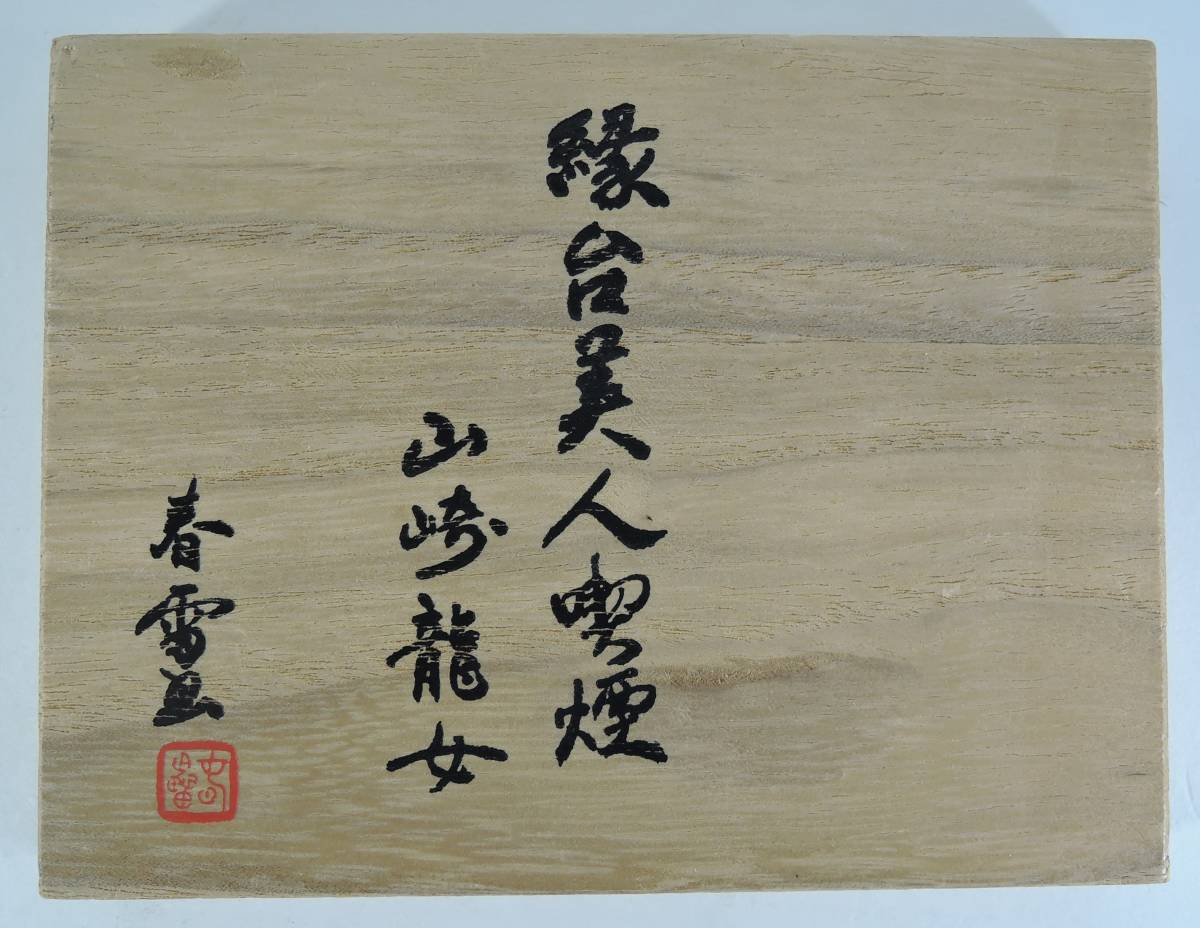 縁台美人喫煙
山崎龍女
春雪画